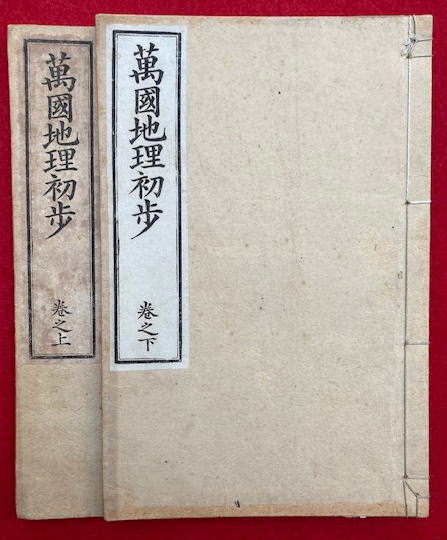 萬國地理初歩
卷之下
萬國地理初歩
卷之上